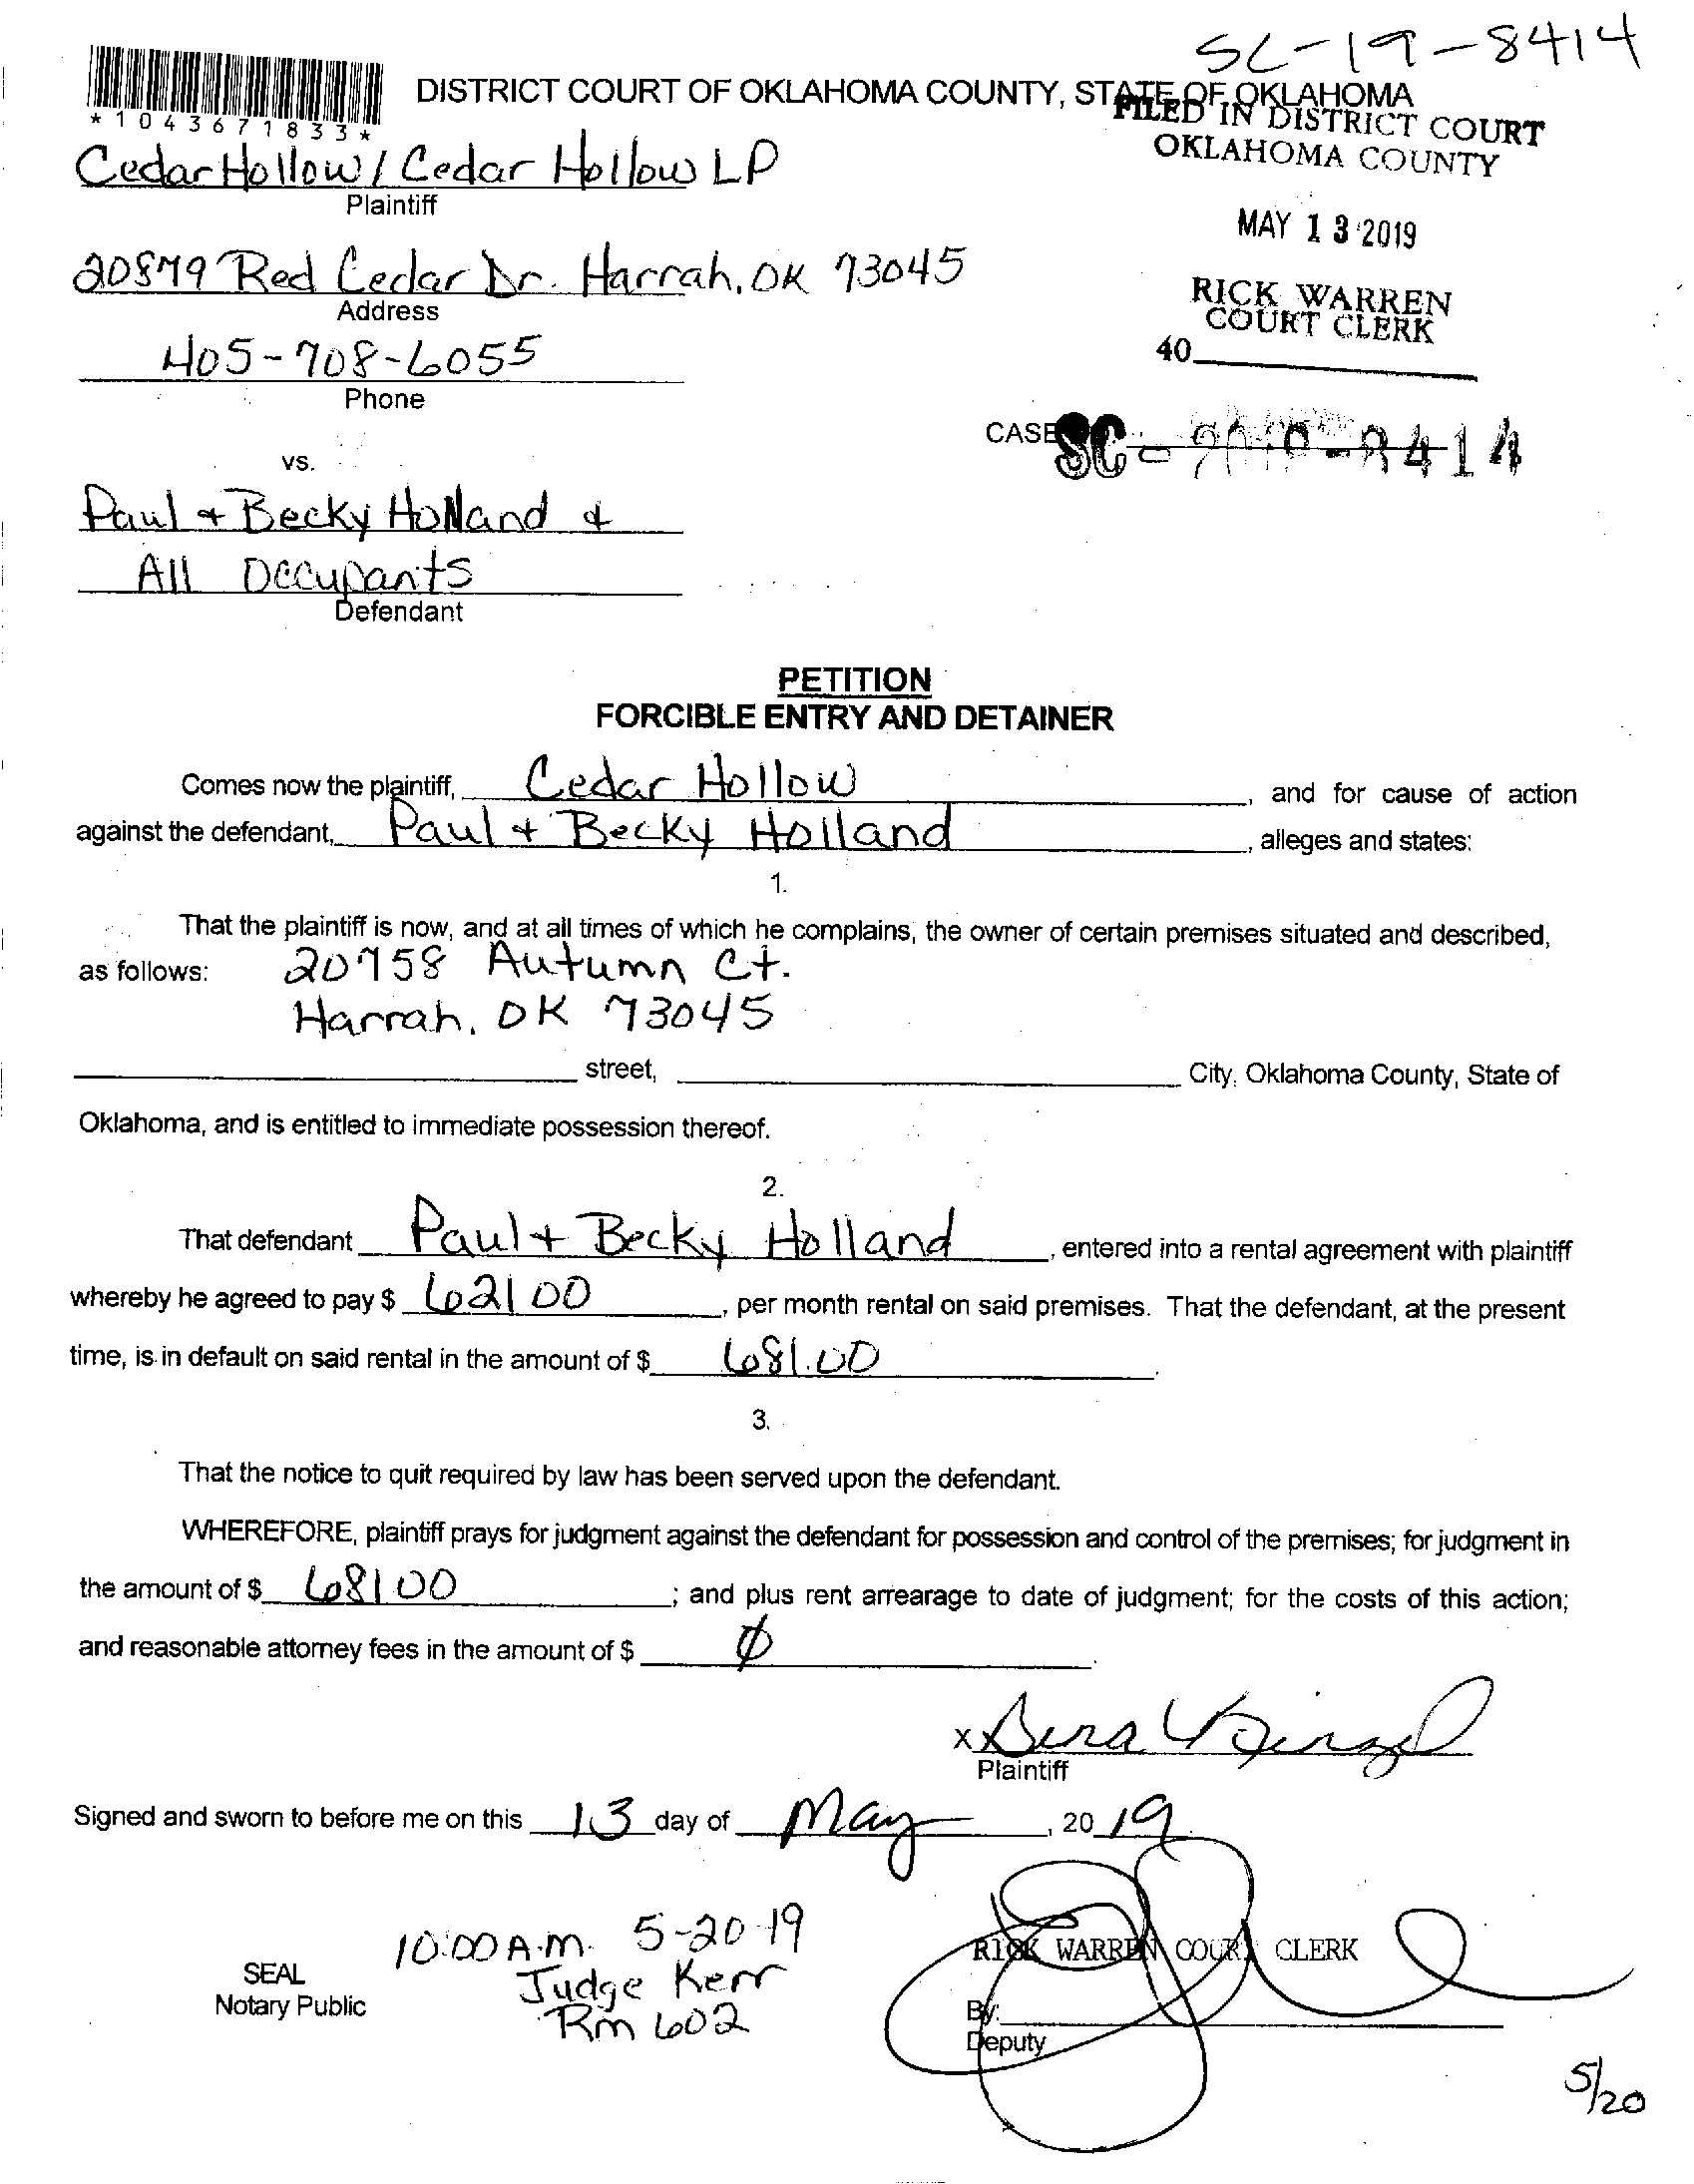 SC-19-8414
*1043671833*
DISTRICT COURT OF OKLAHOMA COUNTY, STATE OF OKLAHOMA
FILED IN DISTRICT COURT
OKLAHOMA COUNTY
Cedar Hollow / Cedar Hollow LP
Plaintiff
MAY 13 2019
20879 Red Cedar Dr. Harrah, OK 73045
Address
RICK WARREN
COURT CLERK
405-708-6055
40
Phone
CASE SC - 2019 - 8414
vs.
Paul + Becky Holland &
All Occupants
Defendant
PETITION
FORCIBLE ENTRY AND DETAINER
Comes now the plaintiff, Cedar Hollow, and for cause of action
against the defendant, Paul + Becky Holland, alleges and states:
1.
That the plaintiff is now, and at all times of which he complains, the owner of certain premises situated and described,
as follows: 20758 Autumn Ct.
Harrah, OK 73045
street, City, Oklahoma County, State of
Oklahoma, and is entitled to immediate possession thereof.
2.
That defendant Paul + Becky Holland, entered into a rental agreement with plaintiff
whereby he agreed to pay $ 621 00, per month rental on said premises. That the defendant, at the present
time, is in default on said rental in the amount of $ 681.00.
3.
That the notice to quit required by law has been served upon the defendant.
WHEREFORE, plaintiff prays for judgment against the defendant for possession and control of the premises; for judgment in
the amount of $ 681 00; and plus rent arrearage to date of judgment; for the costs of this action;
and reasonable attorney fees in the amount of $ ϕ.
X
Plaintiff
Signed and sworn to before me on this 13 day of May, 20 19.
10:00 A.M. 5-20-19
Judge Kerr
Rm 602
SEAL
Notary Public
RICK WARREN COURT CLERK
By:
Deputy
5/20